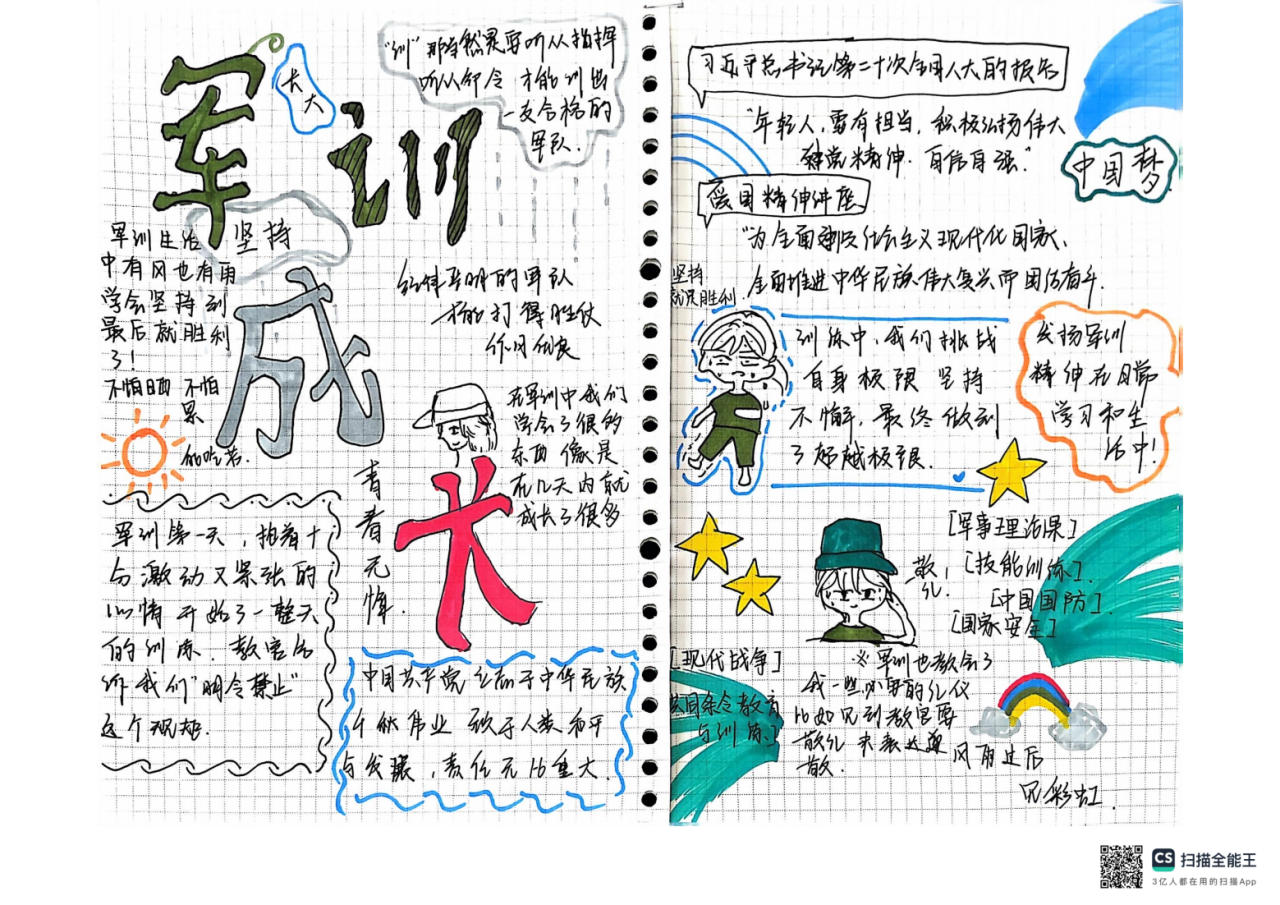 军训
成长
长大
"训"那当然是要听从指挥
听从命令 才能训出
一支合格的
军队.
坚持
军训生活
中有风也有雨
学会坚持到
最后就胜利
了!
不怕晒 不怕
累
能吃苦.
纪律严明的军队
才能打得胜仗
作风优良
在军训中我们
学会了很多
东西 像是
在几天内就
成长了很多
青春无悔.
军训第一天,抱着十
分激动又紧张的
心情开始了一整天
的训练.教官告
诉我们"明令禁止"
这个规矩.
中国共产党立志于中华民族
千秋伟业 致于人类和平
与发展,责任无比重大.
习近平总书记第二十次全国人大的报告
"年轻人,要有担当,积极弘扬伟大
建党精神.自信自强."
中国梦
爱国精神讲座
"为全面建设社会主义现代化国家、
全面推进中华民族伟大复兴而团结奋斗.
坚持
就是胜利.
训练中,我们挑战
自身极限 坚持
不懈,最终做到
了超越极限.
发扬军训
精神在日常
学习和生
活中!
敬
礼!
[军事理论课]
[技能训练].
[中国国防].
[国家安全]
[现代战争]
共同条令教育
与训练.]
※军训也教会了
我一些必要的礼仪
比如见到教官要
敬礼 来表达尊
敬.
风雨过后
见彩虹.
CS 扫描全能王
3亿人都在用的扫描App